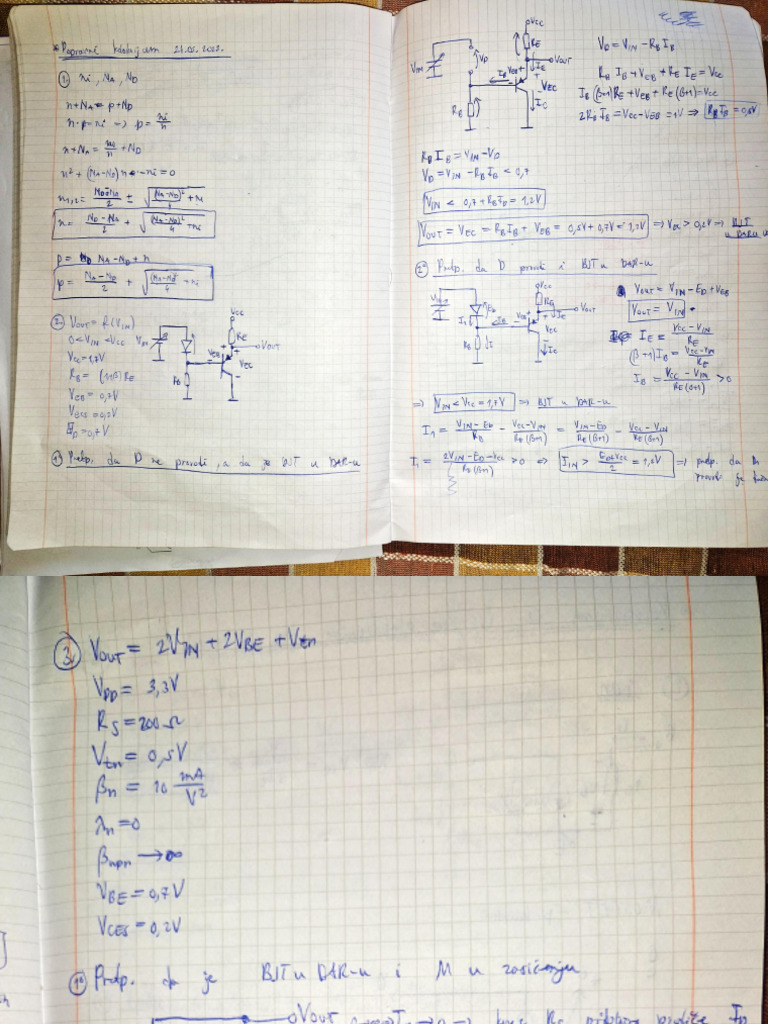 * Popravni kolokvijum 21.05.2022.
1. ni, NA, ND
n+NA = p+ND
n·p = ni => p = ni/n
n+NA = ni/n + ND
n² + (NA-ND)n - ni = 0
n = (ND-NA)/2 + √((NA-ND)²/4 + ni)
p = NA-ND+n
p = (NA-ND)/2 + √((NA-ND)²/4 + ni)
2. VOUT = f(VIN)
0<VIN<VCC
VCC=1,7V
RB = (1+β)RE
VEB = 0,7V
VBES = 0,2V
ED=0,7V
VCC
RE
VOUT
VIN
VEB
VEC
RB
1°) Pretp. da D ne provodi, a da je BJT u DAR-u
VCC
RE
VOUT
VD
IE
VIN
IB
VEB
VEC
RB
IC
VD = VIN - RB IB
RB IB + VEB + RE IE = VCC
IB(β+1)RE + VEB + RE(β+1) = VCC
2RB IB = VCC - VEB = 1V => RB IB = 0,5V
RB IB = VIN - VD
VD = VIN - RB IB < 0,7
VIN < 0,7 + RB IB = 1,2V
VOUT = VEC = RB IB + VEB = 0,5V + 0,7V = 1,2V => VEC > 0,2V => BJT
u DAR-u
2° Pretp. da D provodi i BJT u DAR-u
VCC
RE
VOUT
ED
I1
IB
VEB
IE
VEC
RB
I
IC
VOUT = VIN - ED + VEB
VOUT = VIN
IE = (VCC - VIN)/RE
(β+1)IB = (VCC - VIN)/RE
IB = (VCC - VIN)/(RE(β+1)) > 0
=> VIN < VCC = 1,7V => BJT u DAR-u
I1 = (VIN - ED)/RB - (VCC - VIN)/(RE(β+1)) = (VIN - ED)/(RE(β+1)) - (VCC - VIN)/(RE(β+1))
I1 = (2VIN - ED - VCC)/(RE(β+1)) > 0 <=> IIN > (ED+VCC)/2 = 1,2V => pretp. da D
provodi je
3. VOUT = 2VIN + 2VBE + Vtn
VDD = 3,3V
RS = 200Ω
Vtn = 0,5V
βn = 10 mA/V²
λn = 0
βnpn → ∞
VBE = 0,7V
VCES = 0,2V
1° Pretp. da je BJT u DAR-u i M u zasićenju
VOUT